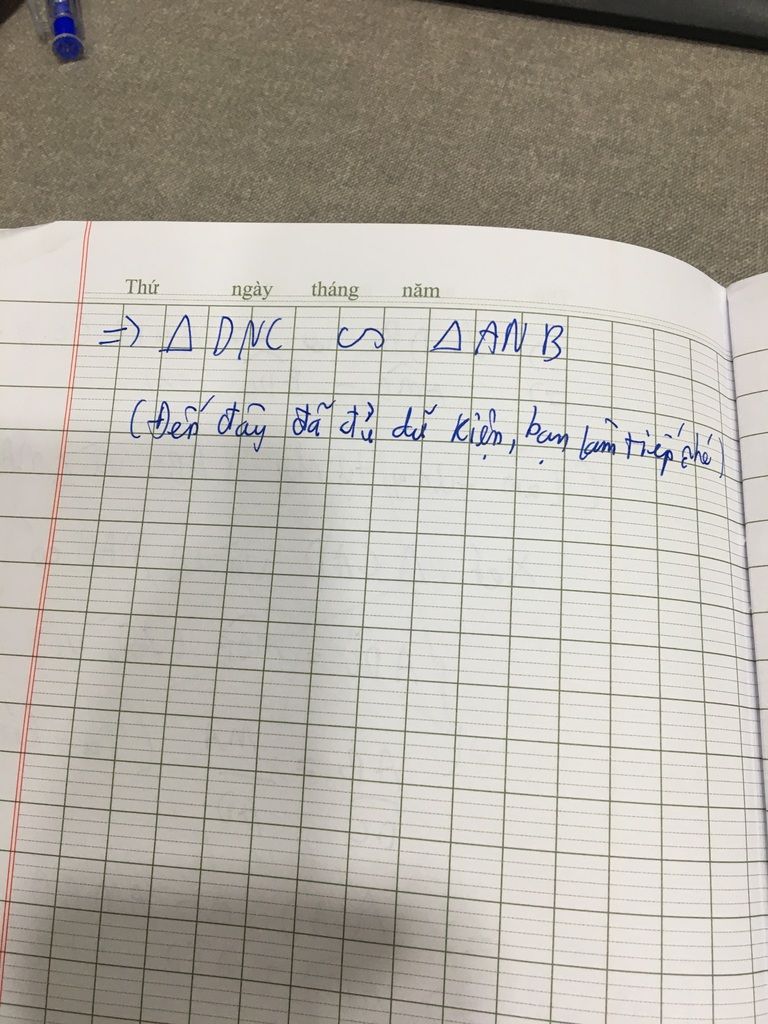 Thứ ngày tháng năm
=> Δ DNC ∽ Δ ANB
(Đến đây đã đủ dữ kiện, bạn làm tiếp nhé)